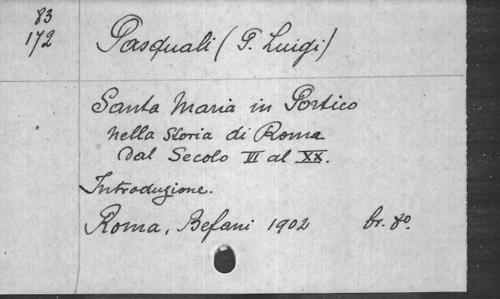 83
172
Pasquali (P. Luigi)
Santa Maria in Portico
nella Storia di Roma
Dal Secolo VI al XX.
Introduzione.
Roma, Befani 1902 br. 8º.